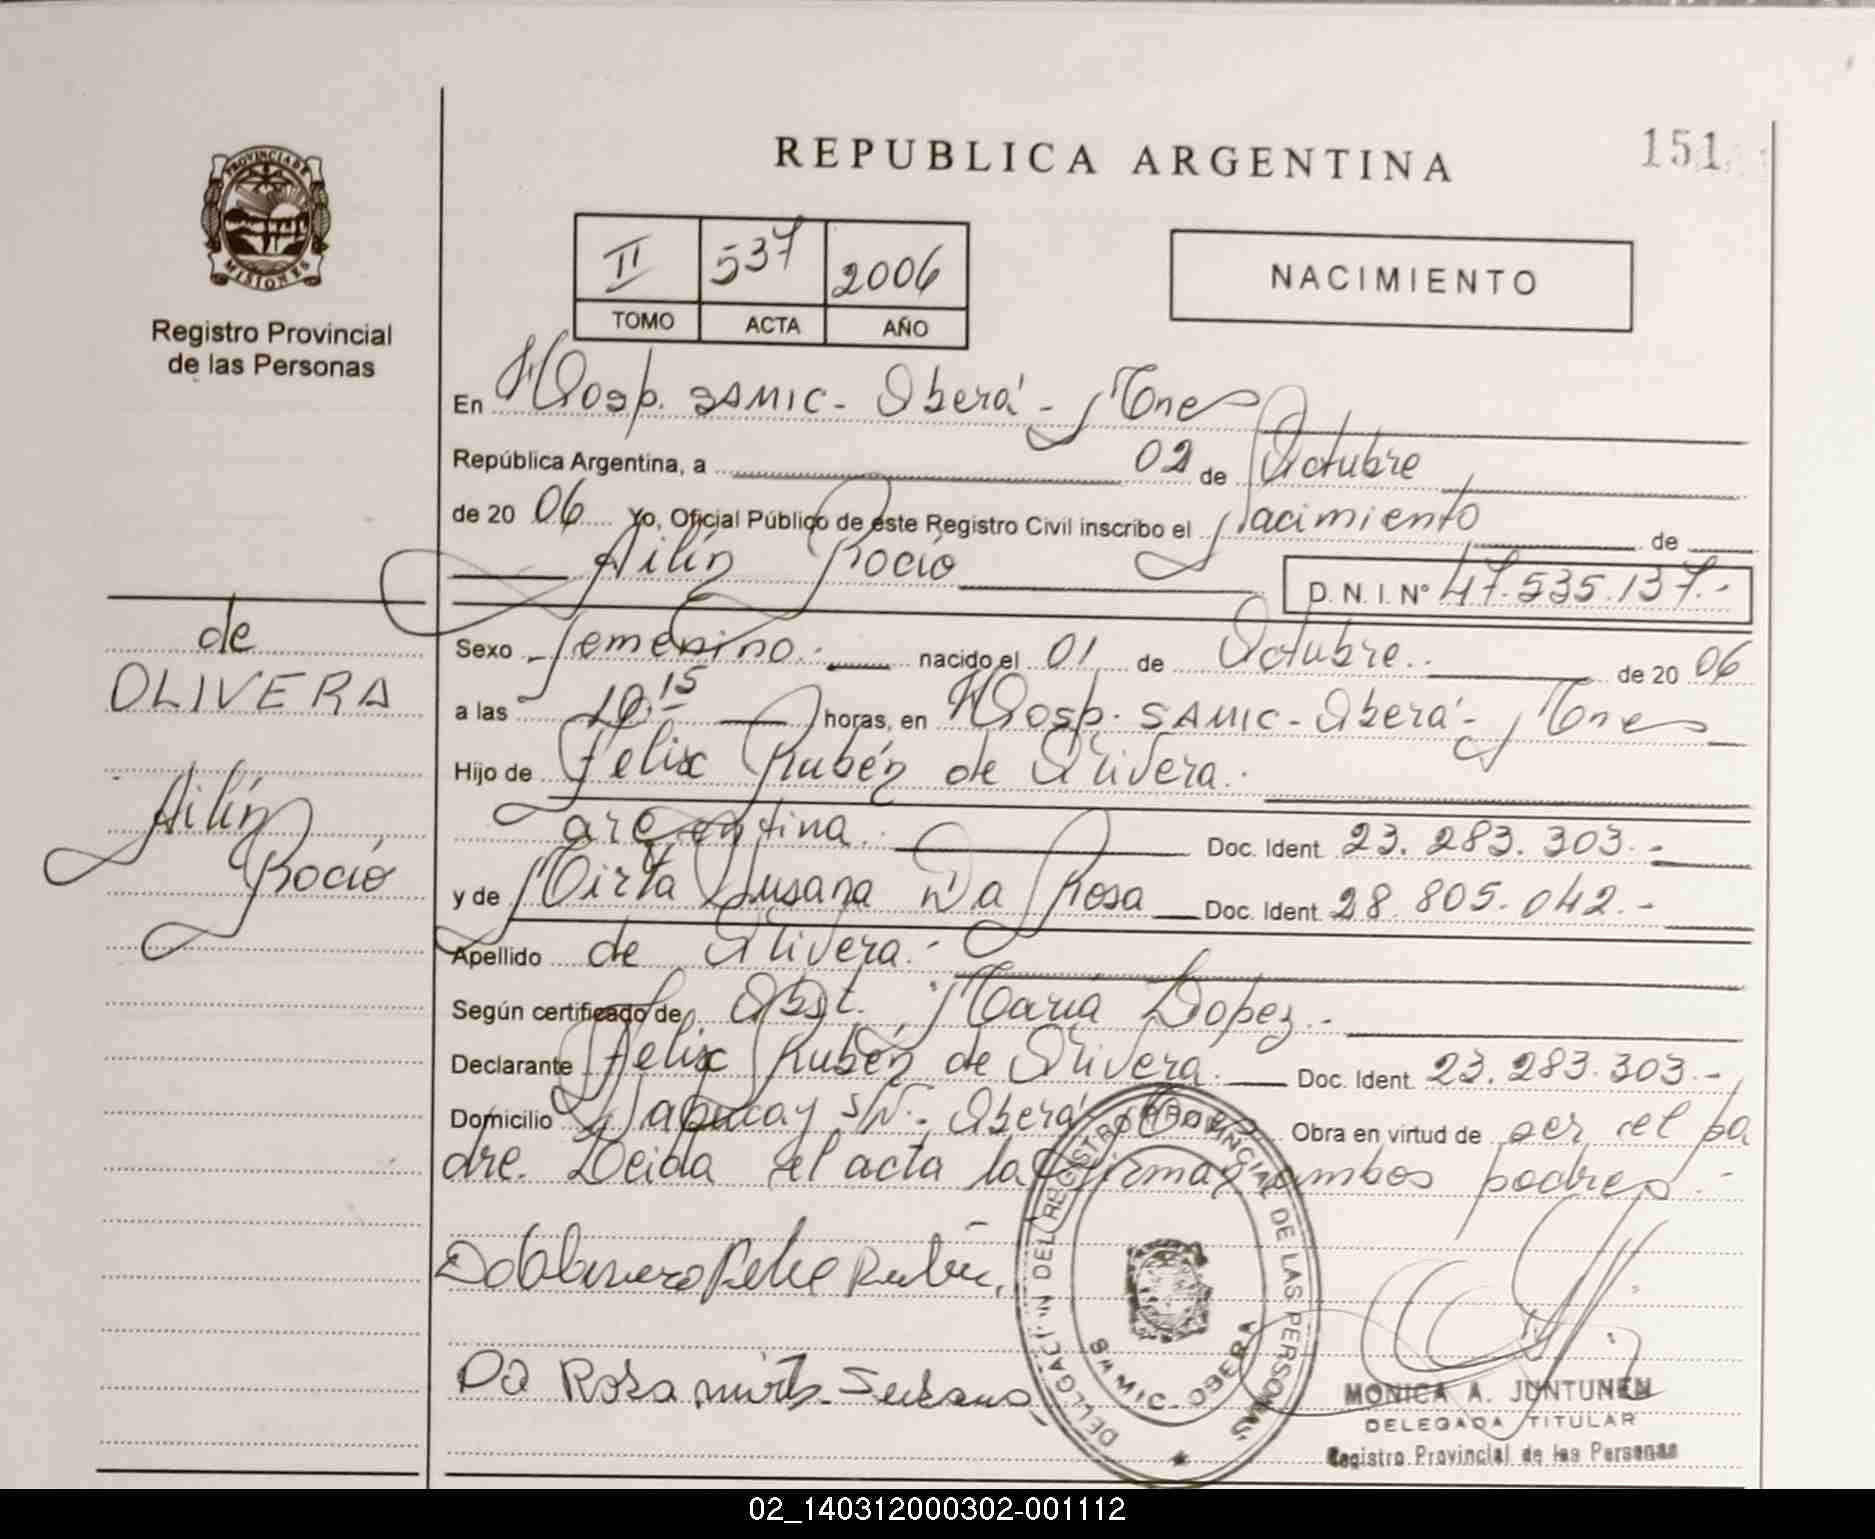 REPUBLICA ARGENTINA
151
PROVINCIA DE
MISIONES
Registro Provincial
de las Personas
II 537 2006
TOMO ACTA AÑO
NACIMIENTO
En Hosp. SAMIC - Oberá - Mnes
República Argentina, a 02 de Octubre
de 20 06 Yo, Oficial Público de este Registro Civil inscribo el Nacimiento de
Ailín Rocío D. N. I. Nº 47.535.137.-
de
OLIVERA
Ailín
Rocío
Sexo femenino.- nacido el 01 de Octubre. de 20 06
a las 10.15 horas, en Hosp. SAMIC - Oberá - Mnes
Hijo de Felix Rubén de Olivera.
argentina. Doc. Ident. 23.283.303.-
y de Mirta Susana Da Rosa Doc. Ident. 28.805.042.-
Apellido de Olivera.-
Según certificado de Obst. María Lopez.-
Declarante Felix Rubén de Olivera. Doc. Ident. 23.283.303.-
Domicilio S/N.- Oberá Mnes Obra en virtud de ser el pa
dre. Leida el acta la firman ambos padres.-
Felix Rubén
Da Rosa mirta Susana
DELEGACION DEL REGISTRO PROVINCIAL DE LAS PERSONAS
SAMIC - OBERA
MONICA A. JUNTUNEN
DELEGADA TITULAR
Registro Provincial de las Personas
02_140312000302-001112